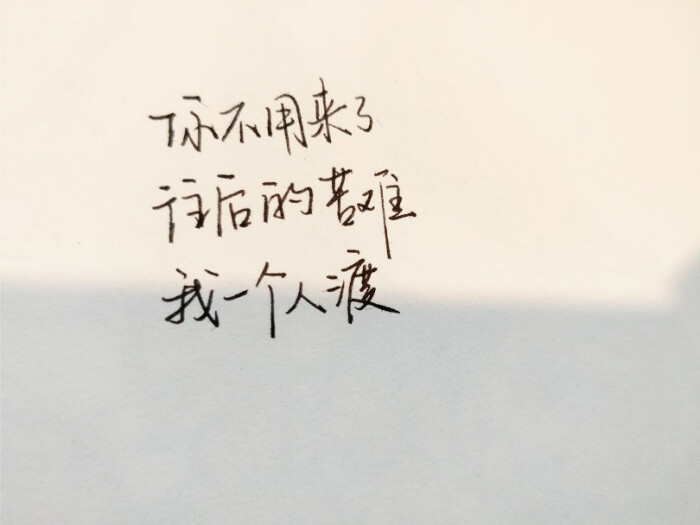 你不用来了
往后的苦难
我一个人渡